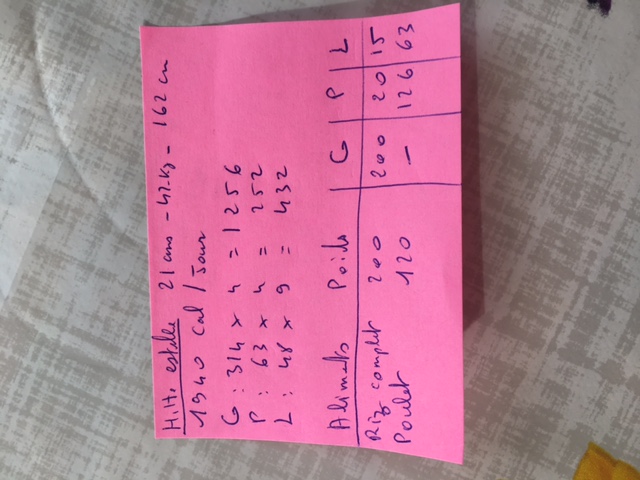 H.H. estelle 21 ans - 47.kg - 162 cm
1940 Cal / Jour
G : 314 x 4 = 1256
P : 63 x 4 = 252
L : 48 x 9 = 432
Aliments Poids G P L
Riz complet 200 200 20 15
Poulet 120 - 126 63